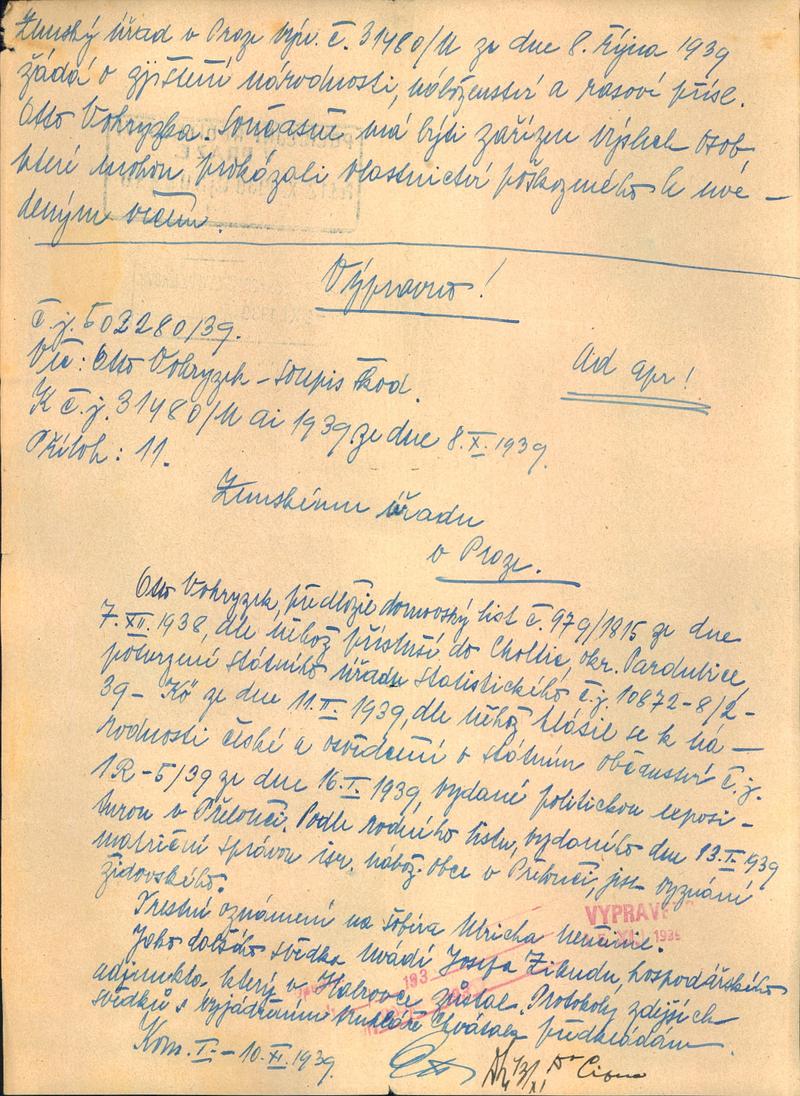 Zemský úřad v Praze výn. č. 31480/II ze dne 8. října 1939
žádá o zjištění národnosti, náboženství a rasové přísl.
Otto Vohryzka. Současně má býti zařízen výslech osob,
které mohou prokázati vlastnictví poškozeného k uvé-
deným věcem.
Výpravno!
Č.j. 502280/39.
Věc: Otto Vohryzek – soupis škod.
Ad apr!
K č.j. 31480/II ai 1939 ze dne 8.X.1939.
Příloh: 11.
Zemskému úřadu
v Praze.
Otto Vohryzek, předložil domovský list č. 979/1815 ze dne
7.XII.1938, dle něhož přísluší do Choltic, okr. Pardubice,
potvrzení Státního úřadu statistického č.j. 10872-8/2-
39-"Kő" ze dne 11.II.1939, dle něhož hlásil se k ná-
rodnosti české a osvědčení o státním občanství č.j.
1R-5/39 ze dne 16.I.1939, vydané politickou exposi-
turou v Přelouči. Podle rodného listu, vydaného dne 13.I.1939
matriční správou isr. nábož. obce v Přelouči, jest vyznání
židovského.
Trestní oznámení na šoféra Ulricha neučinil.
Jako dalšího svědka uvádí Josefa Zikudu, hospodářského
adjunkta, který v zůstal. Protokoly zdejších
svědků s vyjádřením truhláře Chvátala předkládám.
VYPRAVE
XI. 1939
193
Kom. I. – 10.XI.1939.